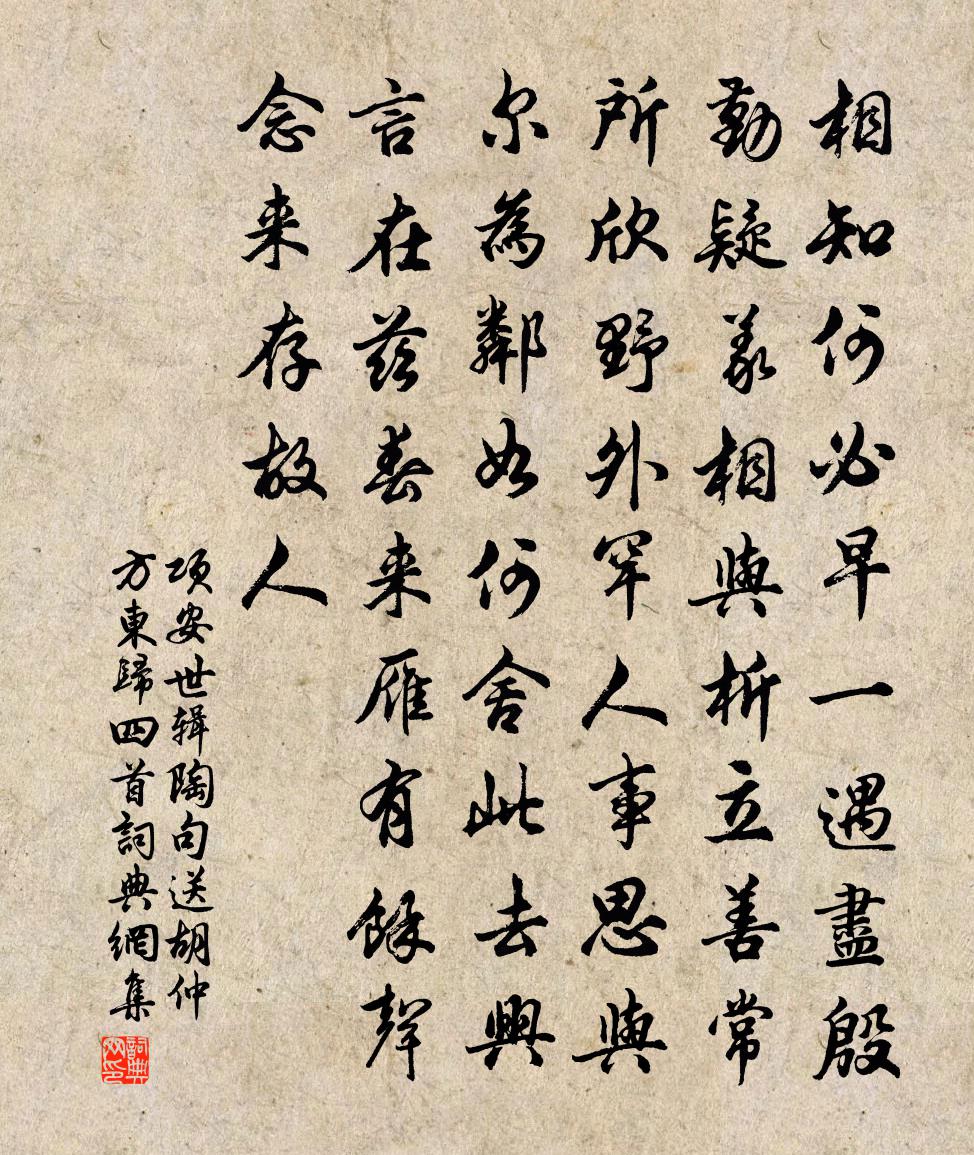 相知何必早一遇盡殷
勤疑義相與析立善常
所欣野外罕人事思與
尔為鄰如何舍此去興
言在茲春来雁有餘聲
念来存故人
項安世辑陶句送胡仲
方東歸四首詞典網集
詞典網印